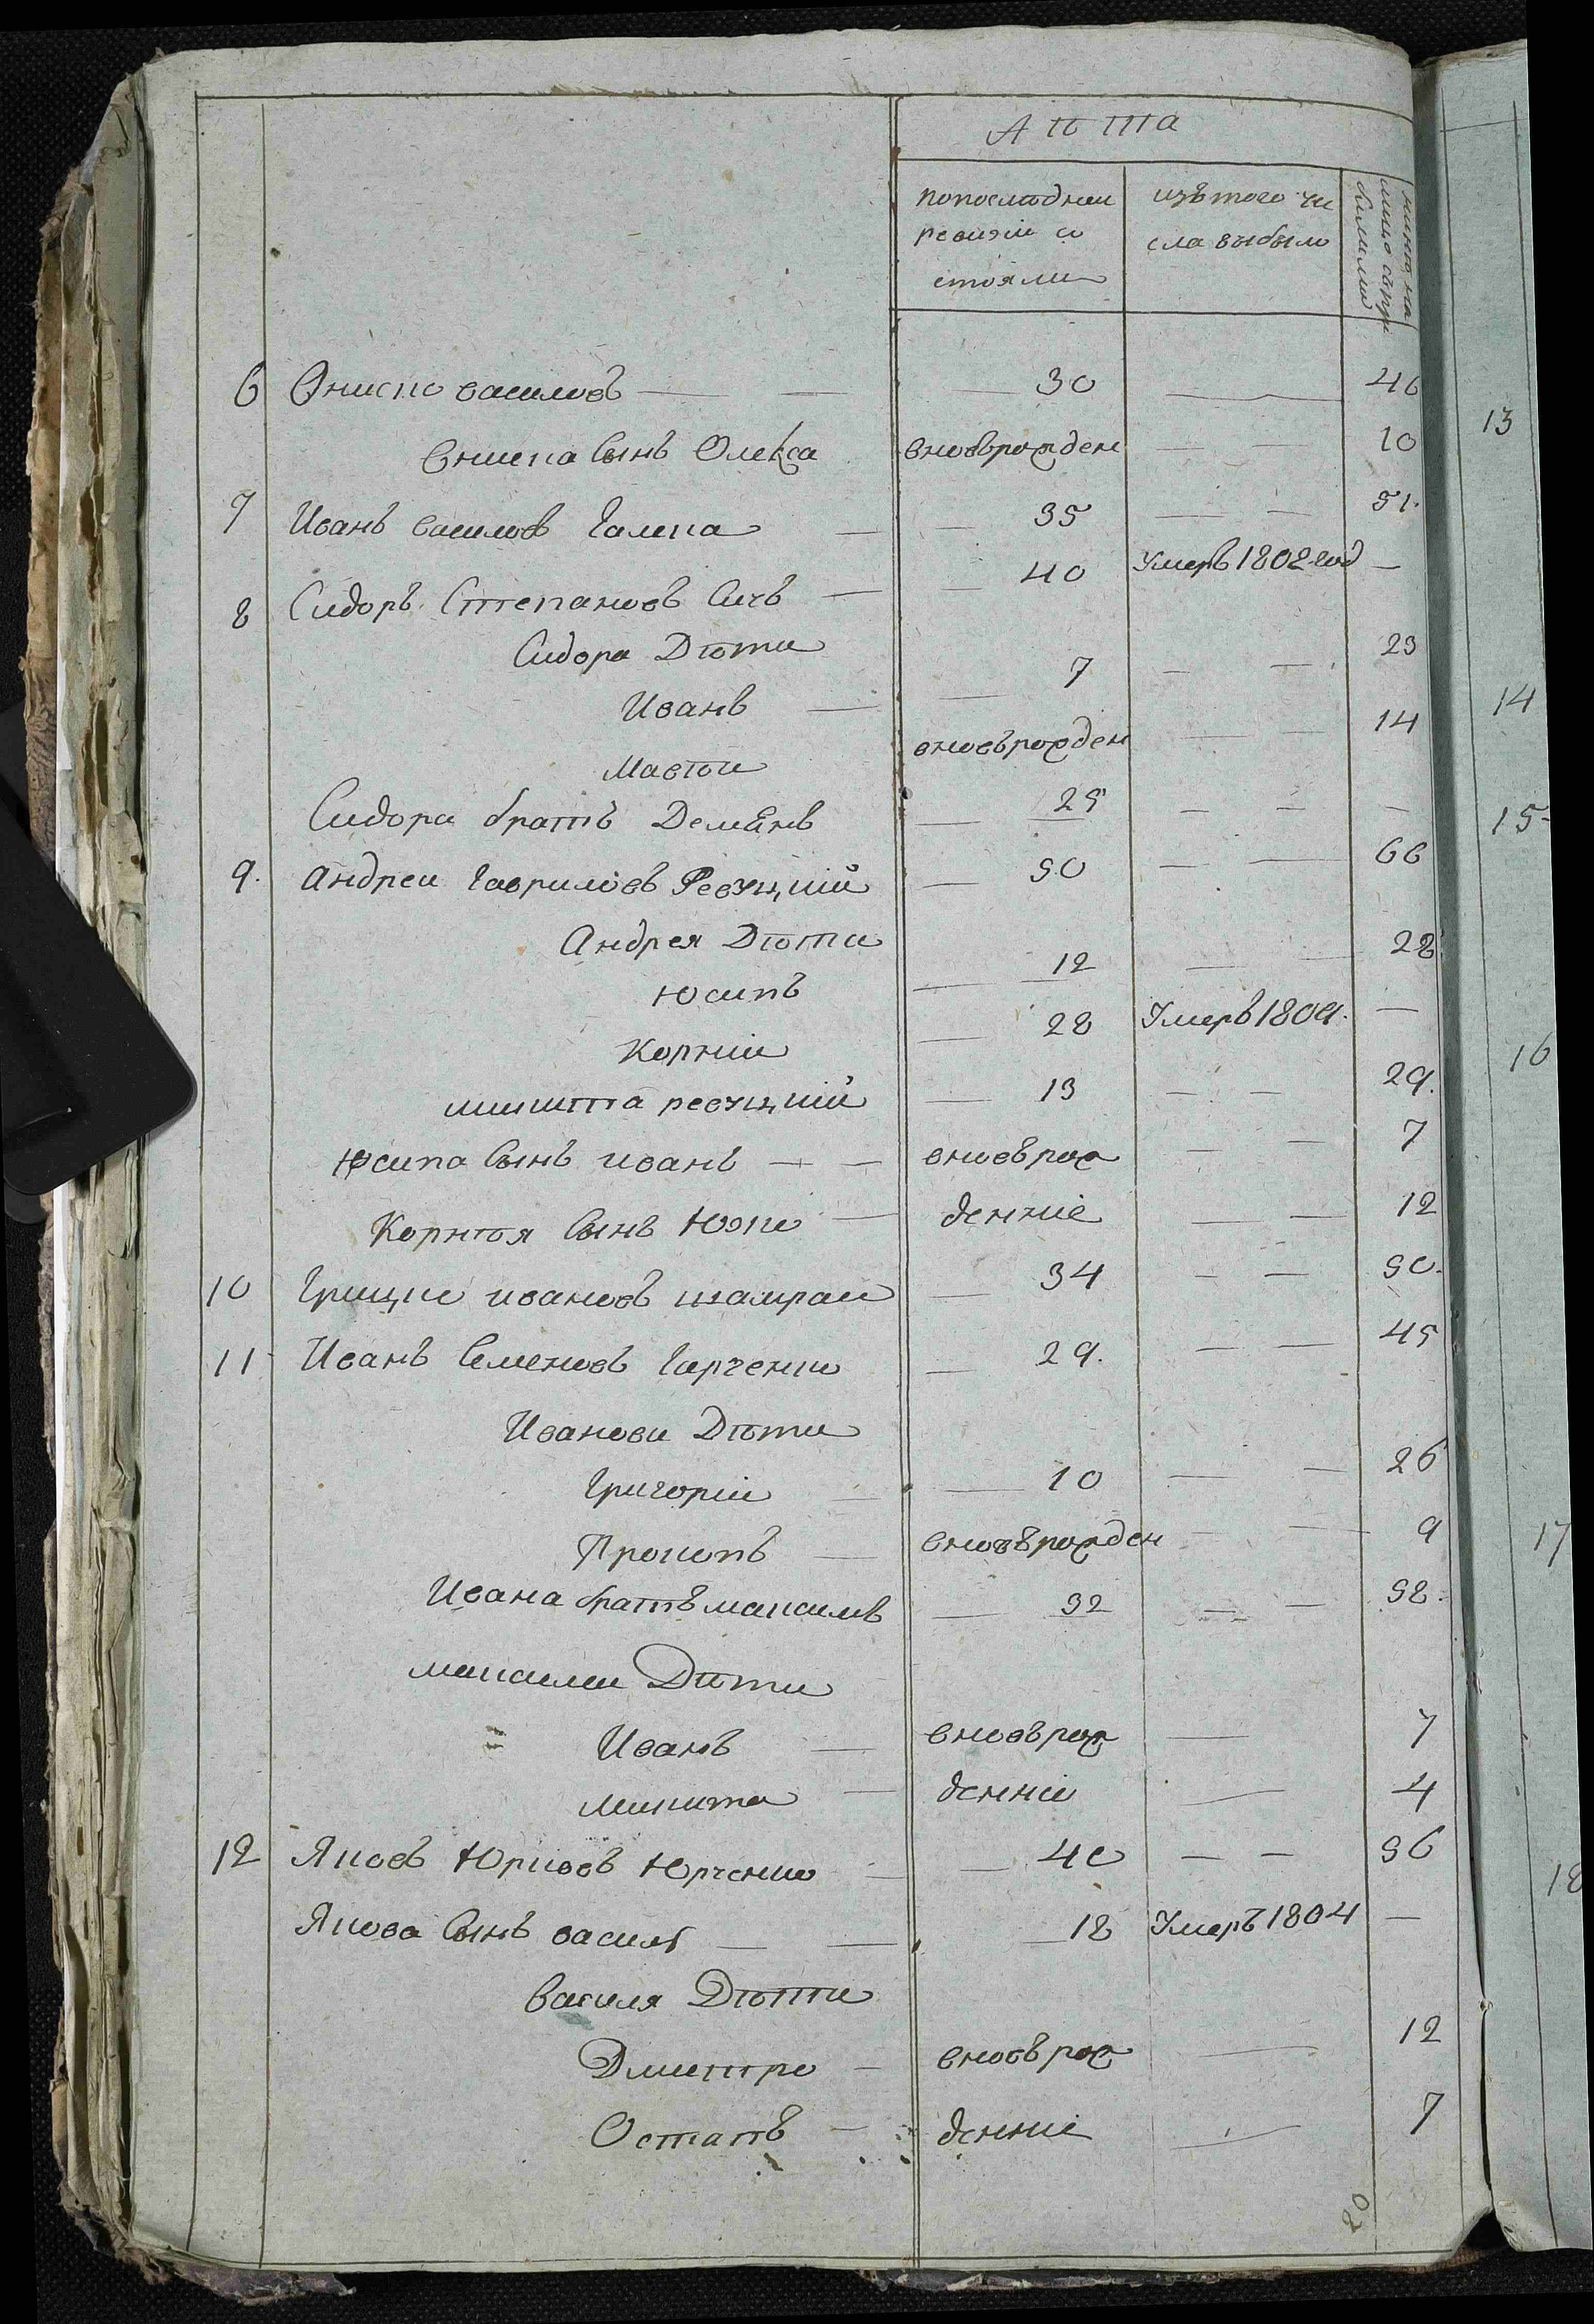 Лѣта
попоследнеи ревизіи состояли
изътого числа выбыло
ныне на лицо
6 Ониско василовъ — — 30 — 46
Ониска Сынъ Олекса вновьрожден — — 10
7 Иванъ василовъ Галка — — 35 — — 51.
8 Сидоръ Степановъ Сичъ — — 40 Умеръ 1802 год —
Сидора Дѣти
Иванъ — — 7 — — 23
Матѣи вновьрожден — — 14
Сидора братъ Демянъ — 25 — — —
9. Андреи Гавриловъ Ревуцкій — 50 — — 66
Андрея Дѣти
Юсипъ — 12 — — 28
Корніи — 28 Умеръ 1809. —
микита ревуцкій — 13 — — 29.
Юсипа Сынъ иванъ — — вноврож — — 7
Корнѣя Сынъ Юзко — денніе — — 12
10 Грицко ивановъ шамраи — 34 — — 50.
11 Иванъ Семеновъ Гарченко — 29. — — 45
Иванови Дѣти
Григоріи — — 10 — — 26
Прокопъ — вновьрожден — — 9
Ивана братъ максимъ — 32 — — 58.
максими Дѣти
Иванъ — вновьрож — 7
микита — денніи — 4
12 Яковъ Юрковъ Юрченко — — 40 — — 56
Якова Сынъ василь — — 18 Умеръ 1804 —
Василя Дѣти
Дмитро — вновьрож — 12
Остапъ — денніе — 7
20
13
14
15
16
17
18